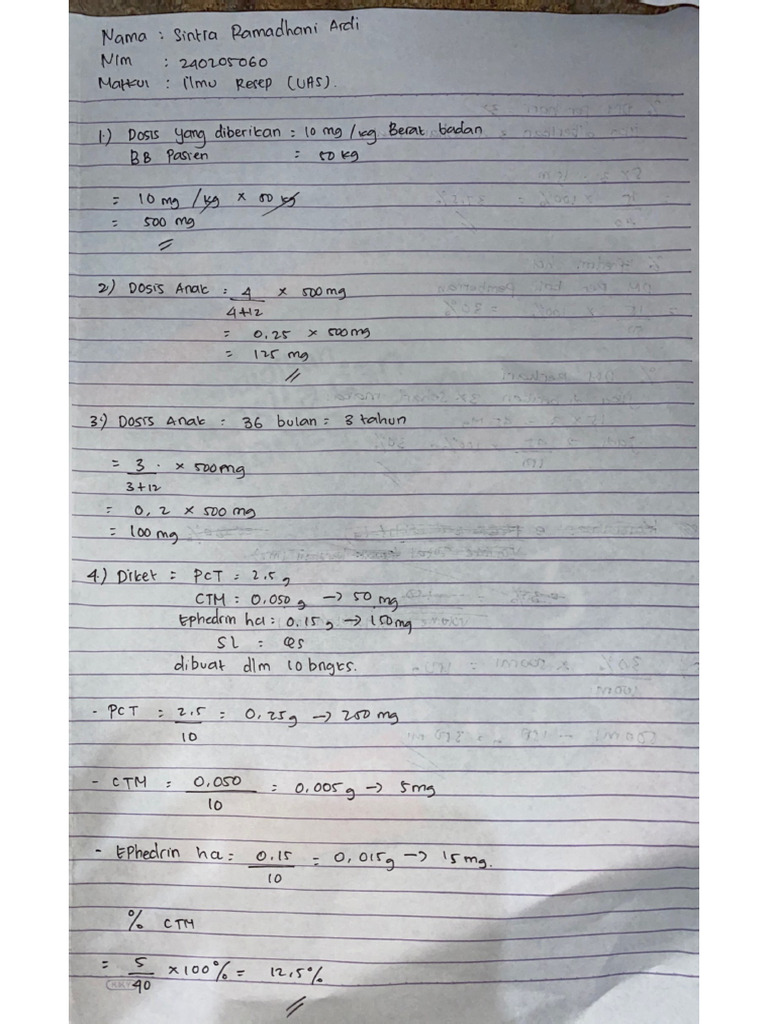 Nama : Sintra Ramadhani Ardi
Nim : 240205060
Matkul : Ilmu Resep (UAS).
1.) Dosis yang diberikan : 10 mg / kg Berat badan
BB Pasien = 50 kg
= 10 mg / kg x 50 kg
= 500 mg
2) Dosis Anak : 4/4+12 x 500 mg
= 0,25 x 500 mg
= 125 mg
3.) Dosis Anak : 36 bulan = 3 tahun
= 3/3+12 x 500 mg
= 0,2 x 500 mg
= 100 mg
4.) Diket = PCT = 2.5 g
CTM : 0,050 g → 50 mg
Ephedrin hcl : 0.15 g → 150 mg
SL : QS
dibuat dlm 10 bngks.
- PCT = 2.5/10 = 0,25 g → 250 mg
- CTM = 0,050/10 = 0,005 g → 5 mg
- Ephedrin hcl = 0.15/10 = 0,015 g → 15 mg.
% CTM
= 5/40 x 100% = 12,5%